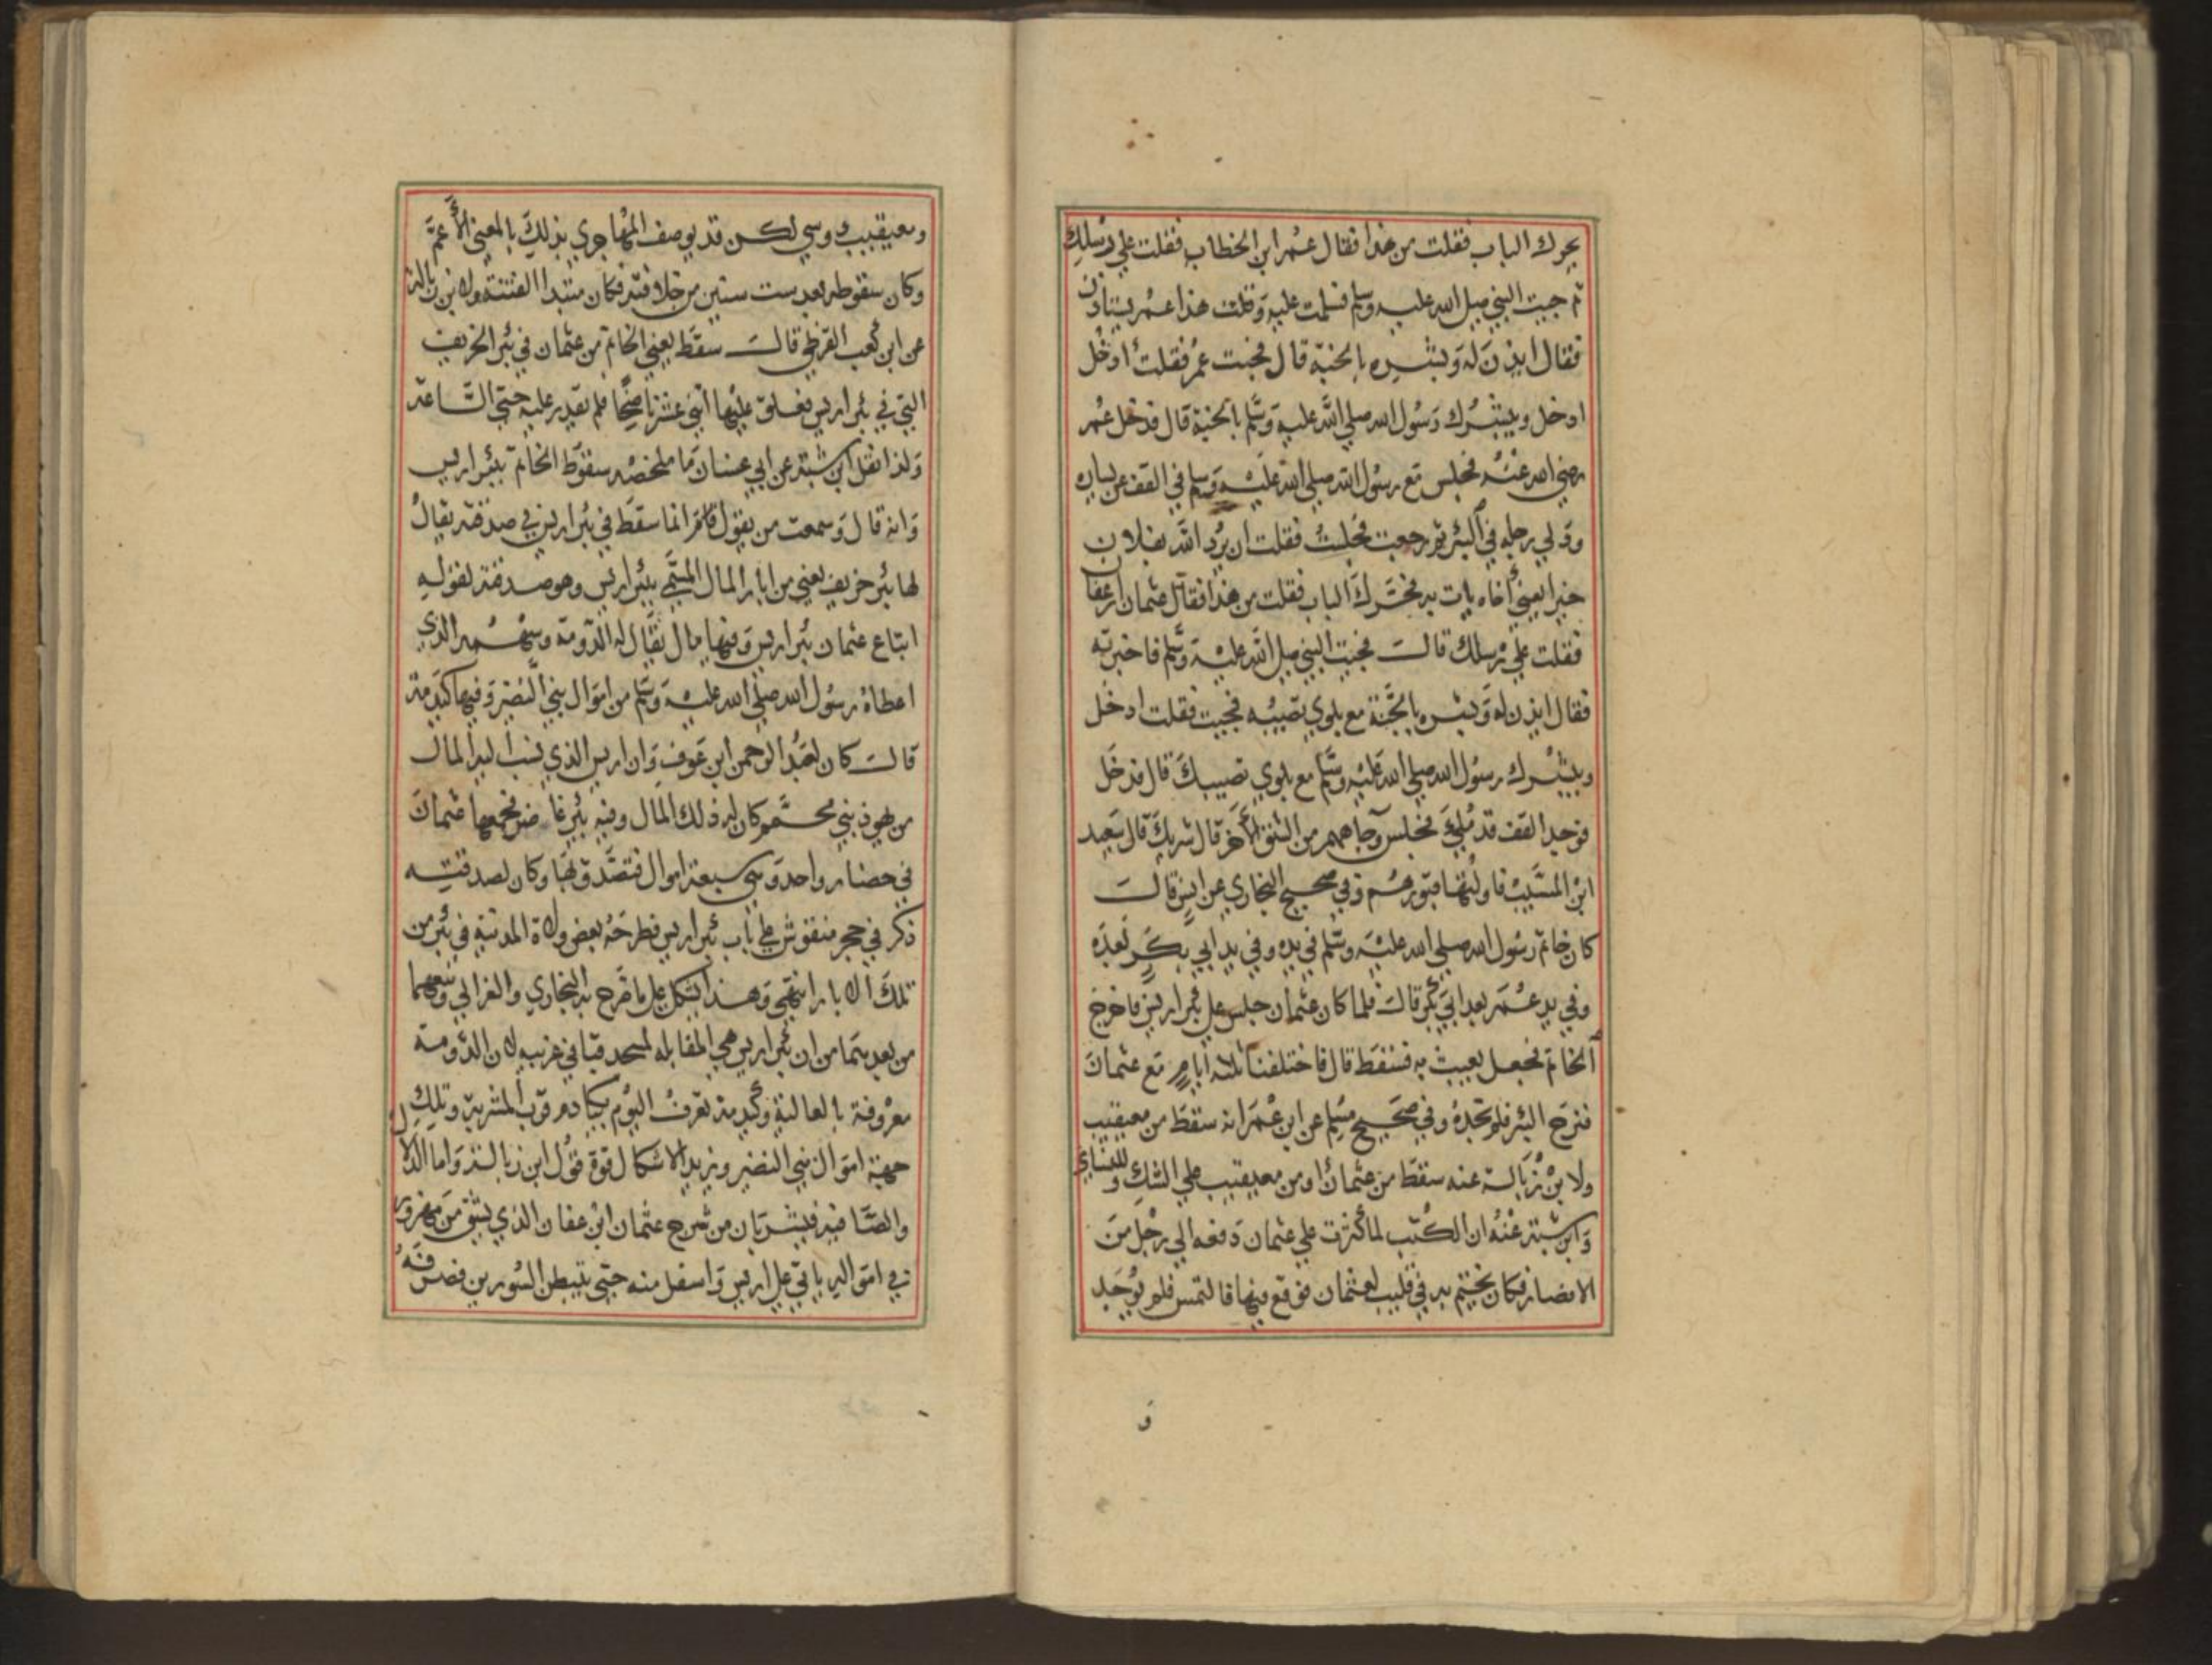 يحرك الباب فقلت من هذا فقال عمر ابن الخطاب فقلت علي رسلك
ثم جيت النبي صلى الله عليه وسلم فسلمت عليه وقلت هذا عمر يستاذن
فقال ايذن له وبشره بالجنة قال فجيت عمر فقلت ادخل
ادخل ويبشرك رسول الله صلي الله عليه وسلم بالجنة قال فدخل عمر
رضي الله عنه فجلس مع رسول الله صلي الله عليه وسلم في القف عن يساره
ودلي رجله في البئر ثم رجعت فجلست فقلت ان يرد الله بفلان
خيرا يعني أخاه يات به فتحرك الباب فقلت من هذا فقال عثمان ابن عفان
فقلت علي رسلك قال فجيت النبي صلي الله عليه وسلم فاخبرته
فقال ايذن له وبشره بالجنة مع بلوي تصيبه فجيت فقلت ادخل
ويبشرك رسول الله صلي الله عليه وسلم مع بلوي تصيبك قال فدخل
فوجد القف قد ملئ فجلس وجاههم من الشق الأخر قال شريك قال سعيد
ابن المسيب فاولتها قبورهم وفي صحيح البخاري عن انس قال
كان خاتم رسول الله صلي الله عليه وسلم في يده وفي يد ابي بكر بعده
وفي يد عمر بعد ابي بكر قال فلما كان عثمان جلس علي بئر اريس فاخرج
الخاتم فجعل يعبث به فسقط قال فاختلفنا ثلاثة أيام مع عثمان
فنزح البئر فلم نجده وفي صحيح مسلم عن ابن عمر انه سقط من معيقيب
ولابن زبالة عنه سقط من عثمان او من معيقيب علي الشك وللنساي
وابن شبة عنه ان الكتب لما كثرت علي عثمان دفعه الي رجل من
الانصار فكان يختم به في قليب لعثمان فوقع فيها فالتمس فلم يوجد
و
ومعيقيب دوسي لكن قد يوصف المهاجري بذلك بالمعني الأعم
وكان سقوطه بعد ست سنين من خلافته فكان مبتدا الفتنة ولابن زبالة
عن ابن كعب القرظي قال سقط يعني الخاتم من عثمان في بئر الخريف
التي في بئر اريس فعلق عليها اثني عشر ناضحا فلم يقدر عليه حتي الساعة
ولذا نقل ابن شبة عن ابي غسان ما ملخصه سقوط الخاتم ببئر اريس
وانه قال وسمعت من يقول انما سقط في بئر اريس في صدقته يقال
لها بئر خريف يعني من ابار المال المسمي ببئر اريس وهو صدقته لقوله
ابتاع عثمان بئر اريس وفيها مال يقال له الدومة وسهمه الذي
اعطاه رسول الله صلي الله عليه وسلم من اموال بني النضير وفيها كيدمة
قال كان لعبد الرحمن ابن عوف وان اريس الذي نسب اليه المال
من يهود بني محمم كان له ذلك المال وفيه بئر غاضر فجمعها عثمان
في حضار واحد وهي سبعة اموال فتصدق بها وكان لصدقته
ذكر في حجر منقوش علي باب بئر اريس فطرحه بعض ولاة المدينة في بئر من
تلك الابار انتهي وهذا يشكل علي ما خرج به البخاري والغزالي وتبعهما
من بعدهما من ان بئر اريس هي المقابلة لمسجد قبا في غربيه لان الدومة
معروفة بالعالية وكيدمة تعرف اليوم بكيادم قرب المشربة وتلك
جهة اموال بني النضير ويزيد الاشكال قوة قول ابن زبالة واما الدلال
والصافية فيشربان من شرح عثمان ابن عفان الذي يشق من مهزور
في امواله ياتي علي اريس واسفل منه حتي يتبطن السورين فصرفه